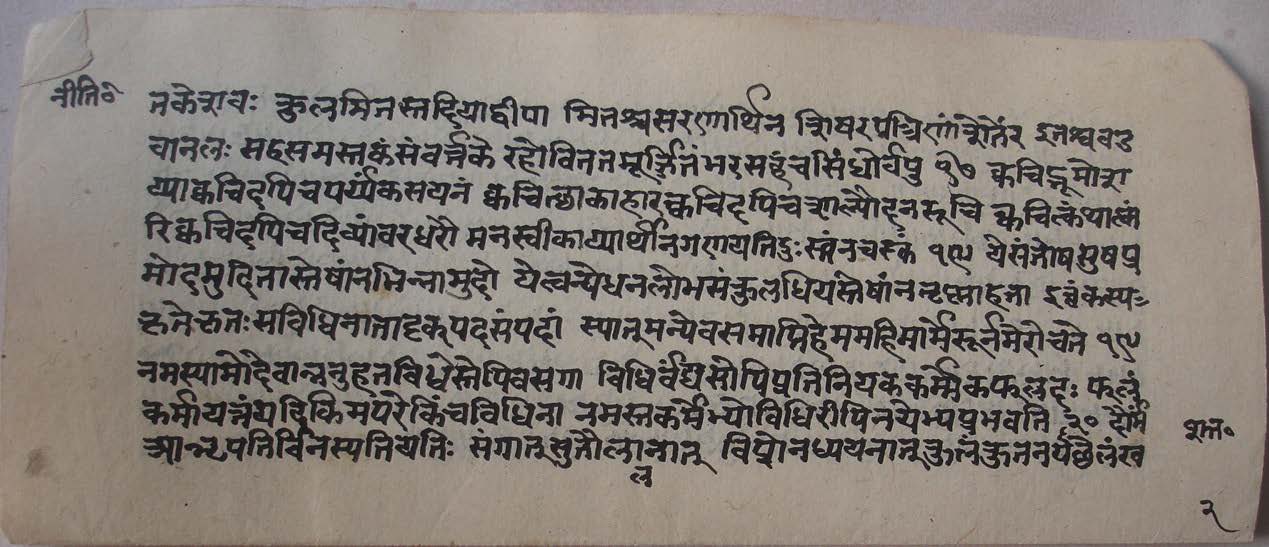 नीति०
तकेशवः कुलमितस्तदियाद्वीपा मितश्चसरणार्थिन शिषरपत्रिणांशेतेर इतश्चवड
वानलः सहसमस्तकंसंवर्त्तके रहोविततमूर्जितंभरसहंचसिंधोर्वपु १७ क्वचिद्भूमोशा
य्याक्वचिदपिचपर्य्यंकसयनं क्वचिच्छाकाहारक्वचिदपिचशाल्यौदनरूचि क्वचित्कंथाल्वा
रिक्वचिदपिचदिव्यांवरधरो मनस्वीकार्यार्थीनगणयतिदुःखंनचसुखं १८ येसंतोषसुषप्र
मोदमुदितास्तेषांनभिन्नामुदो येत्वन्येधनलोभसंकुलधियस्तेषांनतृष्माहता इत्थंकस्य
कृतेकृतःसविधिनातादृक्पदसंपदां स्वात्मन्येवसमाप्तिहेममहिमामेरूर्नमेरोचते १९
नमस्यामोदेवान्ननुहतविधेस्तेपिवसगा विधिर्वंद्यसोपिप्रतिनियतकर्म्मैकफलदः फलं
कर्मायत्तंयदिकिमपरेकिंचविधिना नमस्तकर्मेभ्योविधिरीपिनयेभ्यप्रभवति २० दौर्मं
त्र्यान्नृपतिर्विनस्यतियतिः संगात्सुतौलानात् विप्रोनध्ययनात्कुलंकुतनर्यछैलंख
ल
शत०
२